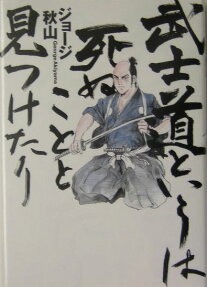 武士道というは
死ぬことと
見つけたり
ジョージ
秋山
George Akiyama